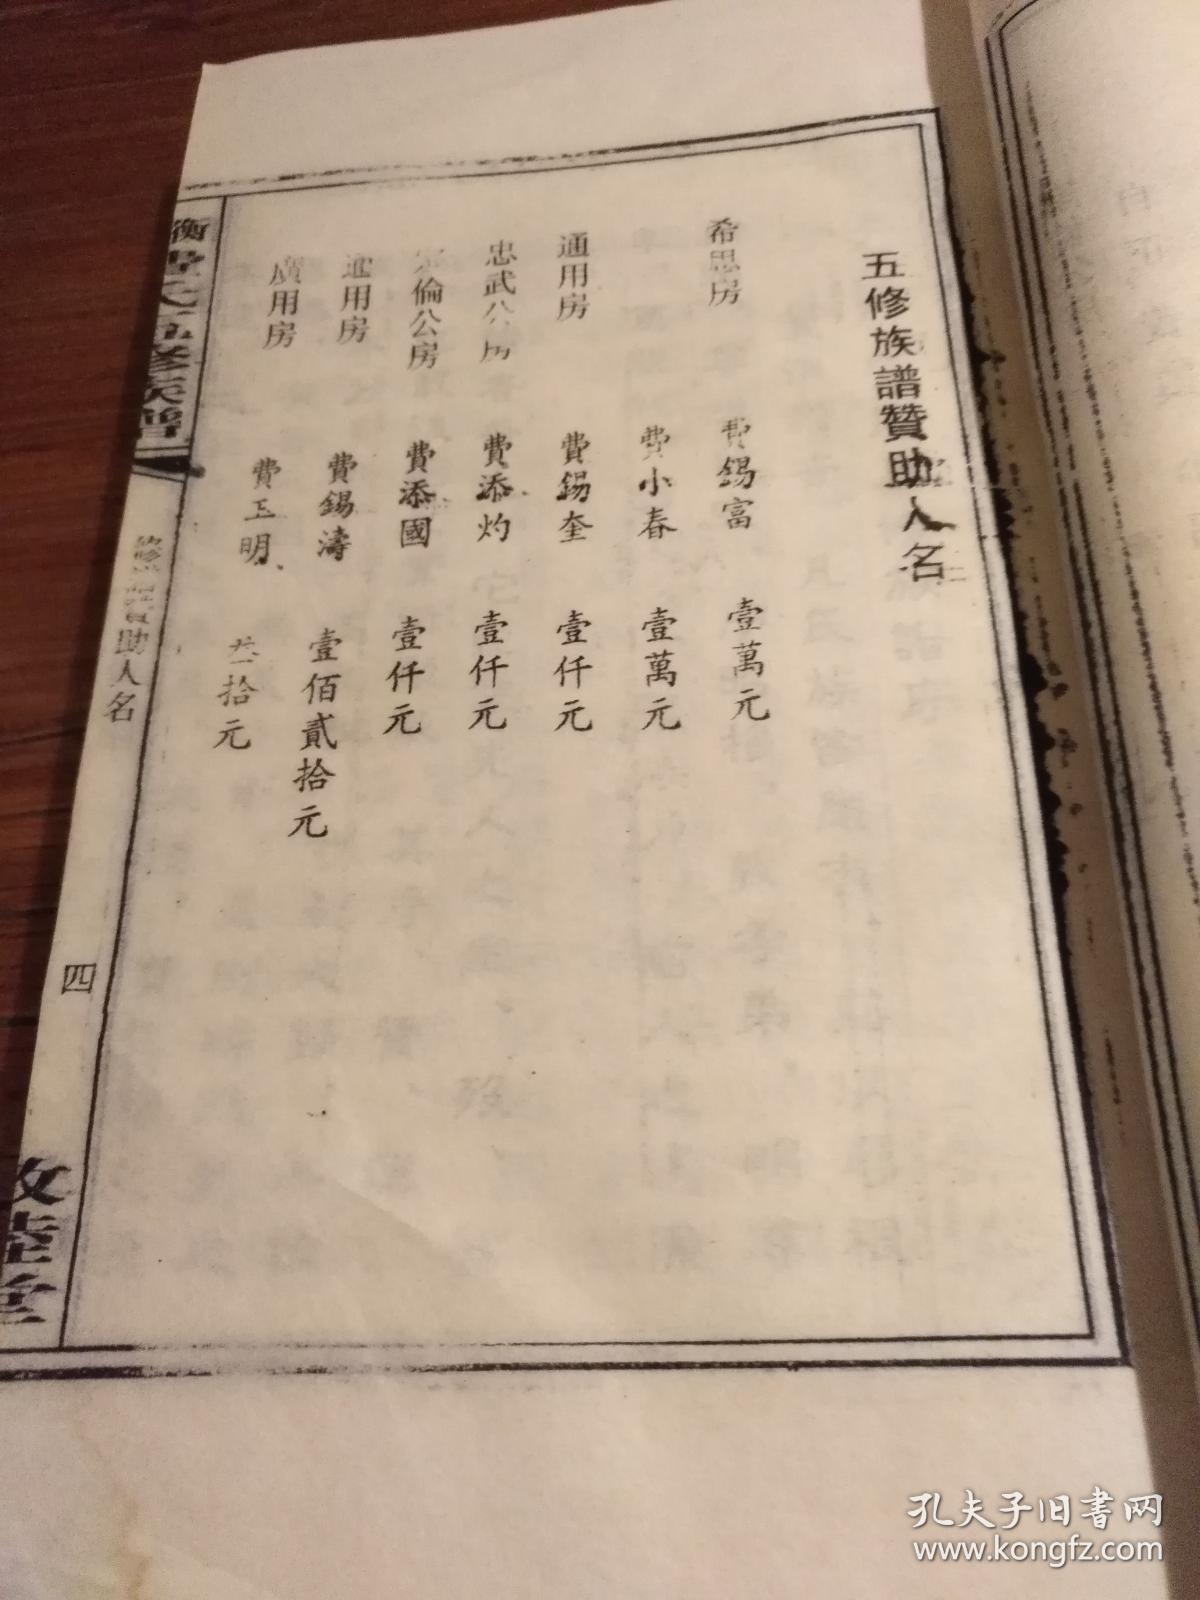 五修族譜贊助人名
希思房 費錫富 壹萬元
費小春 壹萬元
通用房 費錫奎 壹仟元
忠武公房 費添灼 壹仟元
倫公房 費添國 壹仟元
通用房 費錫濤 壹佰貳拾元
廣用房 費玉明 拾元
衡費氏五修族譜
助人名
四
敦睦堂
孔夫子旧书网
www.kongfz.com